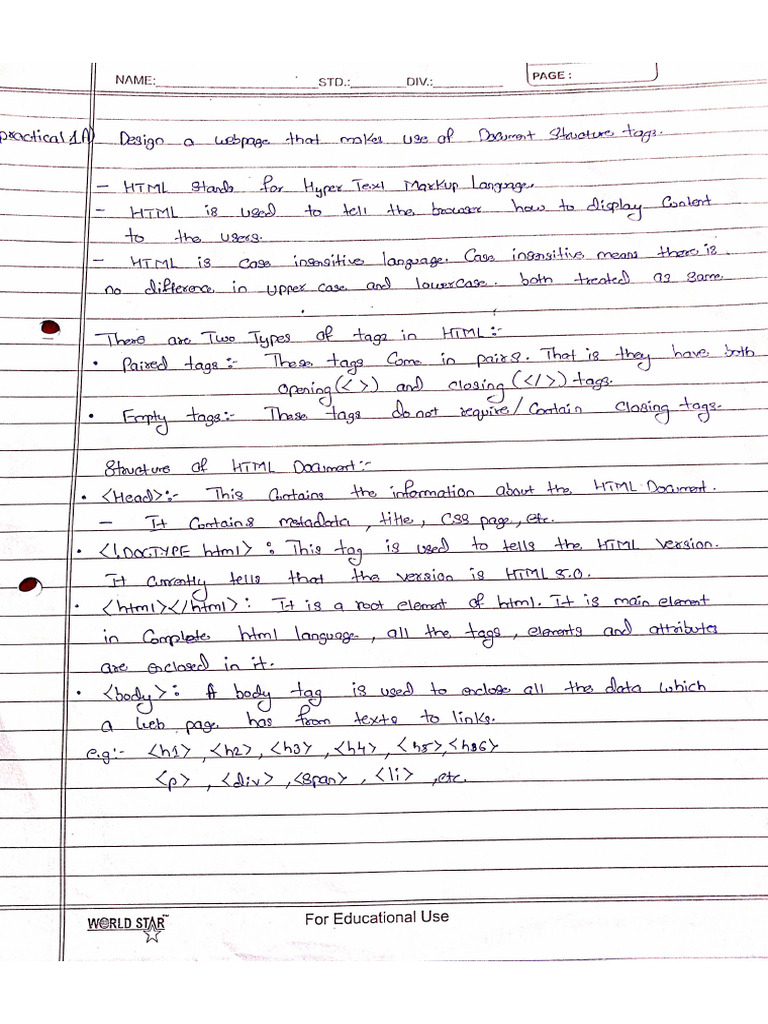 NAME: STD.: DIV.: PAGE :
practical 1A) Design a webpage that makes use of Document Structure tags.
- HTML stands for Hyper Text Markup Language.
- HTML is used to tell the browser how to display Content
to the users.
- HTML is case insensitive language. Case insensitive means there is
no difference in upper case and lowercase. both treated as same
There are Two Types of tags in HTML:-
• Paired tags:- These tags Come in pairs. That is they have both
opening(< >) and closing(</>) tags.
• Empty tags:- These tags do not require/Contain closing tags.
Structure of HTML Document:-
• <Head>:- This Contains the information about the HTML Document.
- It Contains metadata, title, CSS page, etc.
• <!DOCTYPE html> : This tag is used to tells the HTML version.
It currently tells that the version is HTML 5.0.
• <html></html> : It is a root element of html. It is main element
in Complete html language, all the tags, elements and attributes
are enclosed in it.
• <body> : A body tag is used to enclose all the data which
a web page has from texts to links.
e.g:- <h1>, <h2>, <h3>, <h4>, <h5>, <h6>
<p>, <div>, <span>, <li>, etc.
WORLD STAR™ For Educational Use